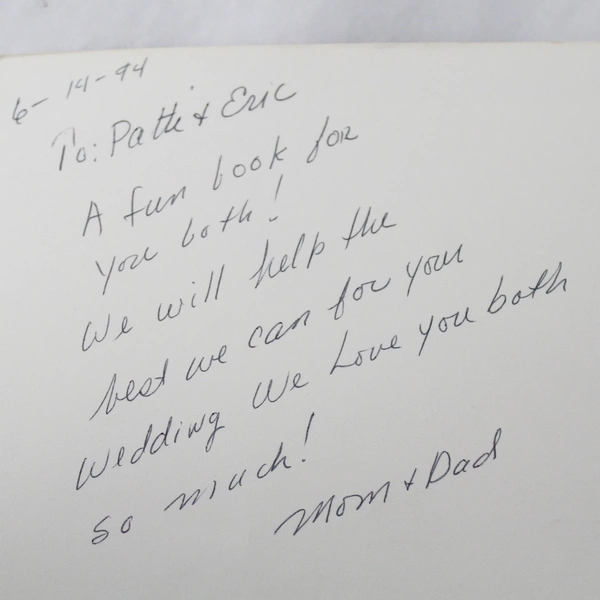 6-14-94
To: Patti & Eric
A fun book for
you both!
We will help the
best we can for your
wedding We Love you both
so much!
Mom + Dad